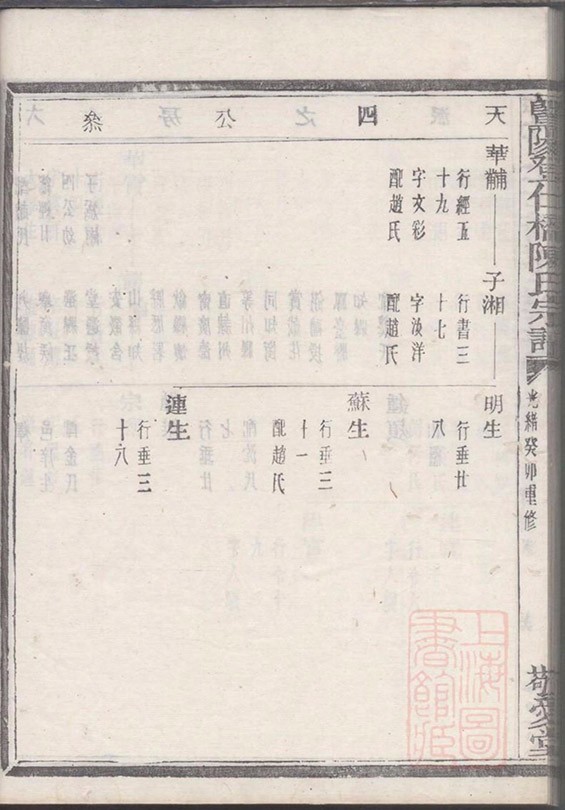 暨陽登仕橋陳氏宗譜
光緒癸卯重修
敬愛堂
天四公叅
華黼
行經五
十九
字文彩
配趙氏
子湘
行書三
十七
字渶洋
配趙氏
明生
行垂廿
八
蘇生
行垂三
十一
配趙氏
連生
行垂三
十八
上海圖
書館藏